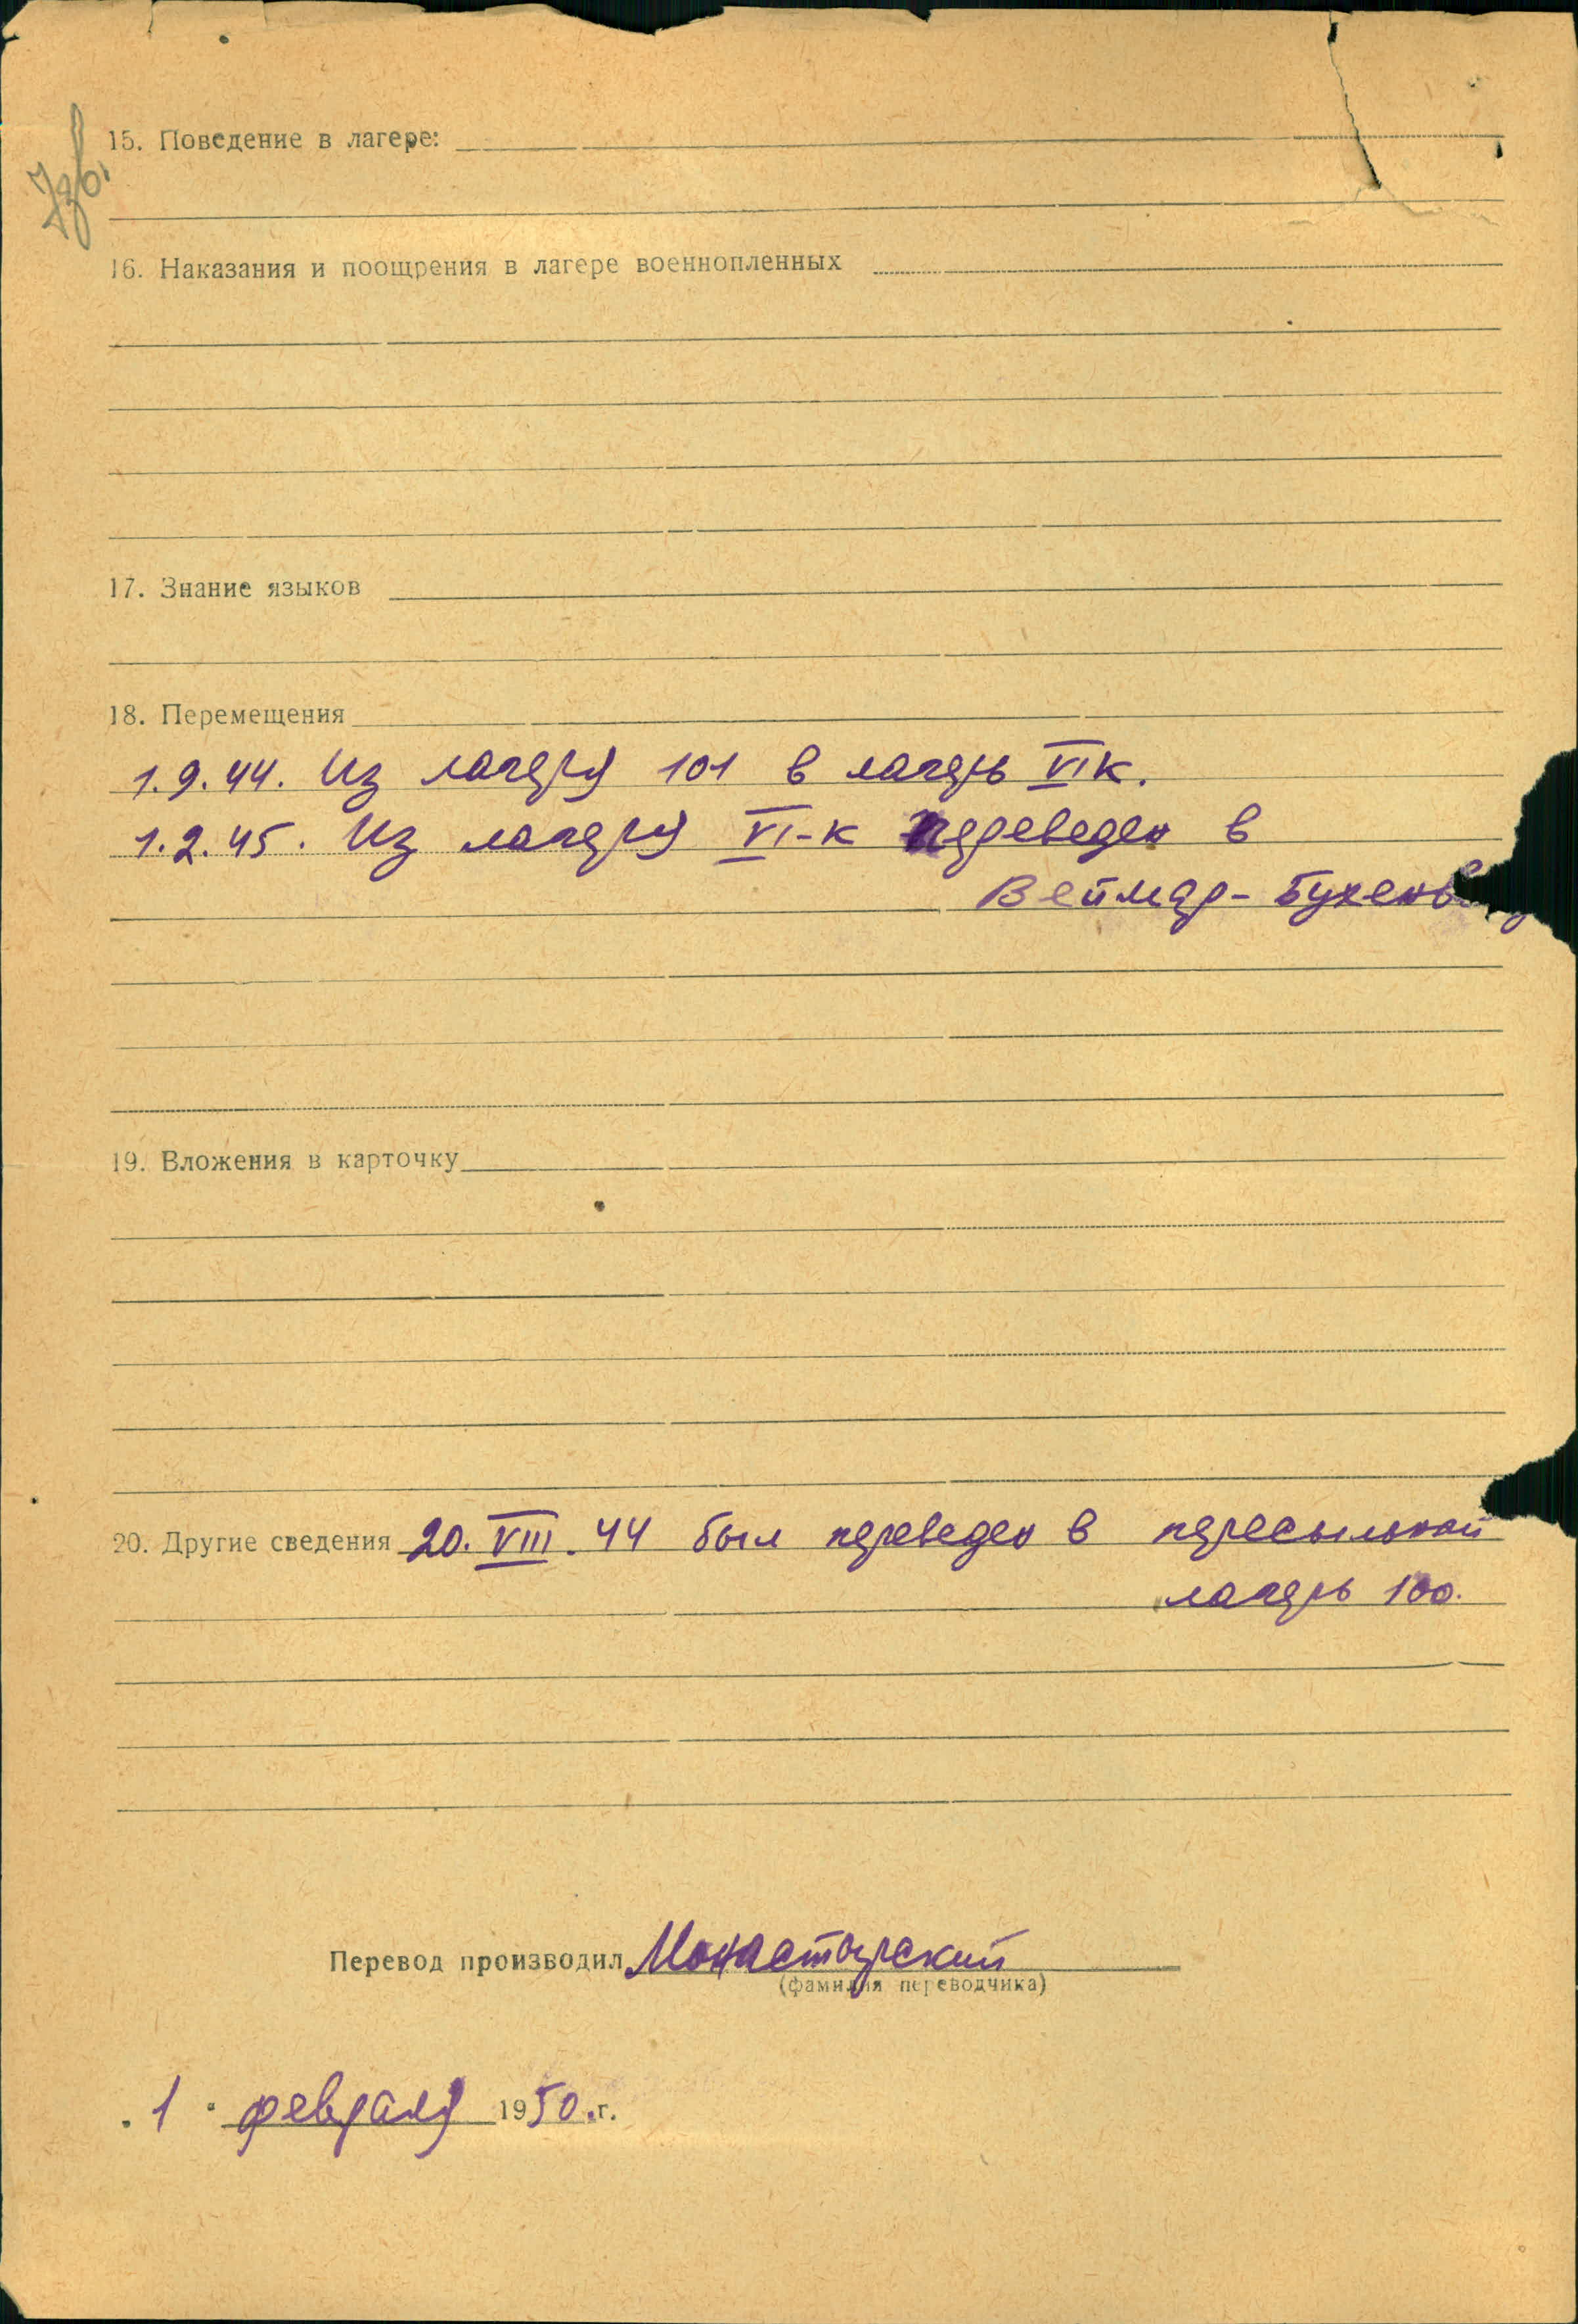 Изв.
15. Поведение в лагере:
16. Наказания и поощрения в лагере военнопленных
17. Знание языков
18. Перемещения
1.9.44. Из лагеря 101 в лагерь VIк.
1.2.45. Из лагеря VI-к переведен в
Веймар-
19. Вложения в карточку
20. Другие сведения 20.VIII.44 был переведен в пересыльной
лагерь 100.
Перевод производил Монастырский
(фамилия переводчика)
1 февраля 1950.г.